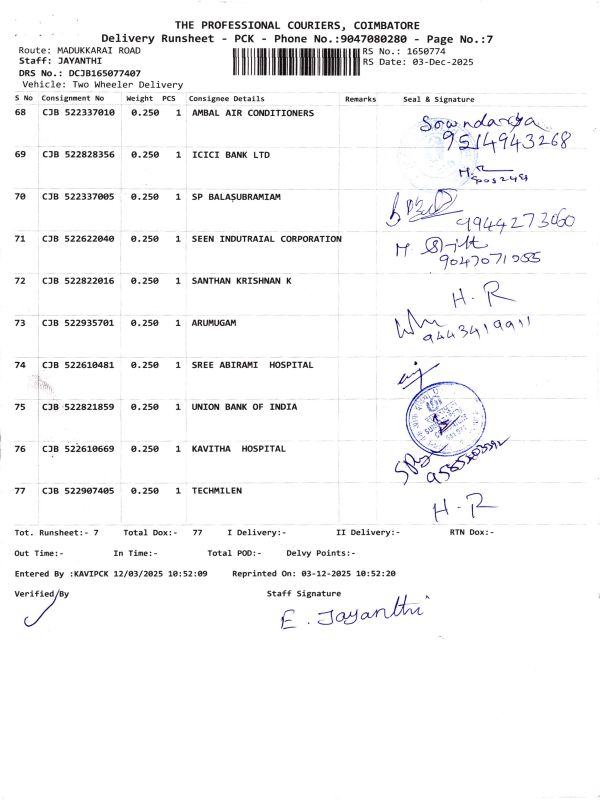 THE PROFESSIONAL COURIERS, COIMBATORE
Delivery Runsheet - PCK - Phone No.:9047080280 - Page No.:7
Route: MADUKKARAI ROAD RS No.: 1650774
Staff: JAYANTHI RS Date: 03-Dec-2025
DRS No.: DCJB165077407
Vehicle: Two Wheeler Delivery
S No Consignment No Weight PCS Consignee Details Remarks Seal & Signature
68 CJB 522337010 0.250 1 AMBAL AIR CONDITIONERS Sowndarya
9514943268
69 CJB 522828356 0.250 1 ICICI BANK LTD
70 CJB 522337005 0.250 1 SP BALASUBRAMIAM
9944273060
71 CJB 522622040 0.250 1 SEEN INDUTRAIAL CORPORATION
9047071055
72 CJB 522822016 0.250 1 SANTHAN KRISHNAN K H.R
73 CJB 522935701 0.250 1 ARUMUGAM
9443419911
74 CJB 522610481 0.250 1 SREE ABIRAMI HOSPITAL
75 CJB 522821859 0.250 1 UNION BANK OF INDIA
76 CJB 522610669 0.250 1 KAVITHA HOSPITAL
77 CJB 522907405 0.250 1 TECHMILEN H.R
Tot. Runsheet:- 7 Total Dox:- 77 I Delivery:- II Delivery:- RTN Dox:-
Out Time:- In Time:- Total POD:- Delvy Points:-
Entered By :KAVIPCK 12/03/2025 10:52:09 Reprinted On: 03-12-2025 10:52:20
Verified By Staff Signature
E. Jayanthi